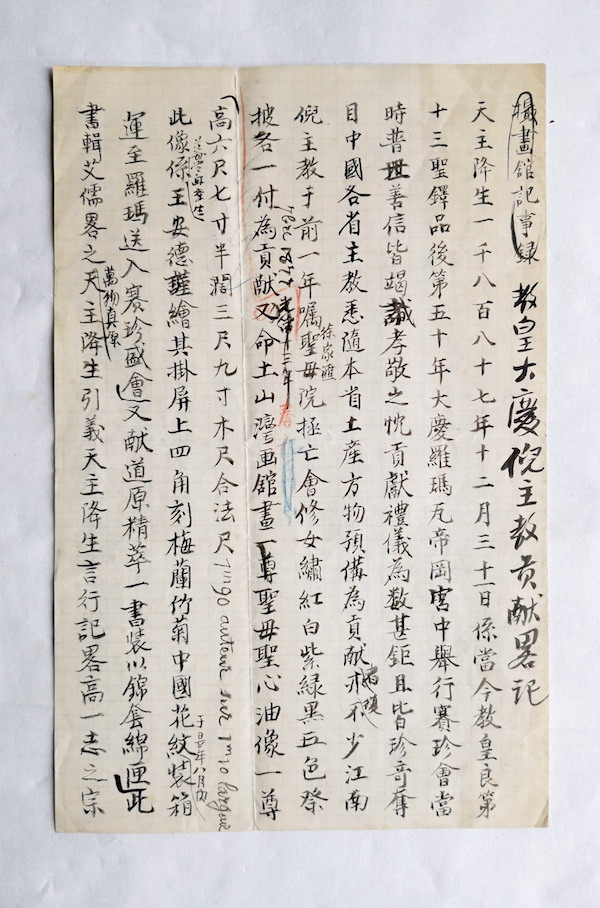 攝畫舘記事録 教皇大慶倪主教貢献畧记
天主降生一千八百八十七年十二月三十一日係當今教皇良第
十三聖鐸品後第五十年大慶羅瑪瓦帝岡宫中舉行賽珍會當
時普世善信皆竭誠孝敬之忱貢獻禮儀為数甚鉅且皆珍奇奪
目中國各省主教悉随本省土産方物預備為貢献亦不少江南
倪主教于前一年嘱聖母院拯亡會修女繡紅白紫緑黑五色祭
徐家匯
披各一付為貢献又命土山灣画舘畫一尊聖母聖心油像一尊
光緒十三年 春
高六尺七寸半濶三尺九寸木尺合法尺 hauteur sur 1m30 largeur
此像係王安德謹繪其掛屏上四角刻梅蘭竹菊中國花紋装箱
于是年八月内
運至羅瑪送入賽珍盛會又献道原精萃一書装以錦套綿匣此
書輯艾儒畧之天主降生引義天主降生言行記畧高一志之宗
萬物真原